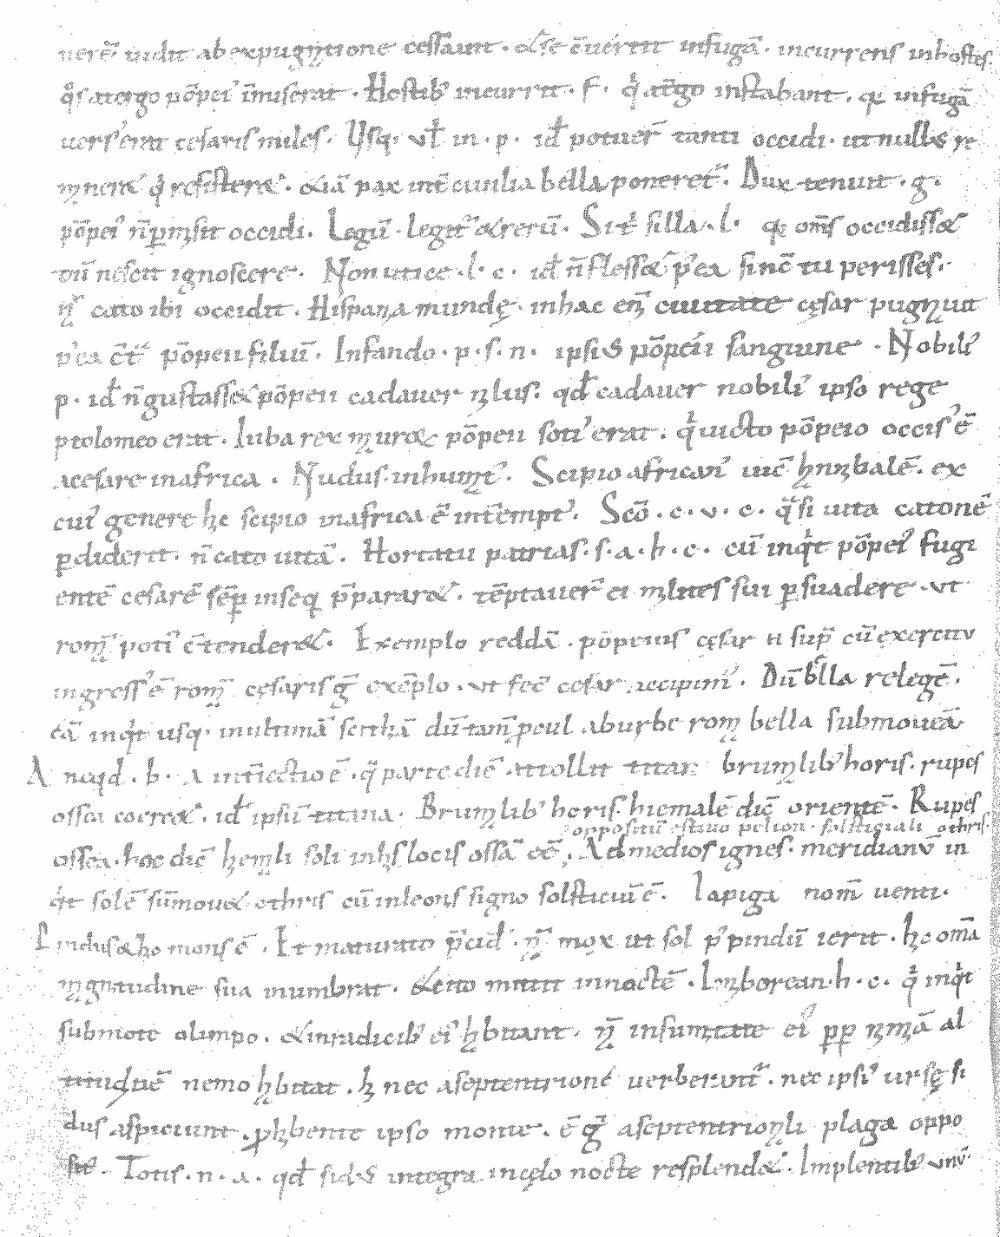 uerē uidit ab expugnatione cessaunt · & se ēuertit infugā · incurrens inhostes.
q̊s atergo pōpei īmiserat · Hostib' incurrit · F · q̇ at̄go instabant · q; infugā
uers'erat cesaris miles · Usq; vł in · p · id potuer̄ tanti occidi · ut nullus re
maner& q̇ resister& · &iā pax int̄ ciuilia bella poneret̃ · Dux tenuit · g ·
pōpei' ñ p̱misit occidi · Legū · legit̃ & rerū · Sit̃ silla · l · q; om̄s occidiss&
tū nescit ignoscere · Non utice · l · c · id ñ fless& p'ea sinc̄ tu perisses ·
ñ cato ibi occidit · Hispana mundę · inhac eñ ciuitate cęsar pugnauit
p'ea c̄t̃ pōpeii filiū · Infando · p · s · n · ipsius pōpeii sanguine · Nobili'
p · id ñ gustass& pōpeii cadauer malus · qd cadauer nobili' ipso rege
ptolomeo erat · Iuba rex maur& pōpeii soti' erat · q̇ uicto pōpeio occis' ē
acesare inafrica · Nudus inhumat' · Scipio african' uic̄ hannibalē · ex
cui' genere hc scipio inafrica ē int̄empt' · Scō · c · v · c · q̃si uita catonē
p̱diderit · ñ cato uitā · Hortatu patrias · s · a · h · c · cū inq̇t pōpei' fugi
entē cesarē sēp̱ inseq; p̄parar& · tēptauer̄ ei milites sui p̱suadere · vt
romā poti' c̄tender& · Exemplo reddā · pōpeius cęsar ñ sup̱ cū exercitu
ingress' ē romā cęsaris ḡ exēplo · vt fec̄ cesar accipim' · Dū bella relegē ·
eā inq̇t usq; inultimā scithā dū tam̄ p̱cul aburbe roma bella submoueā
A nequid · b · a int̄iectio ē · q̃ parte diē attollit titan brumalib' horis · rupes
ossea coerc& · id ipsū titana · Brumalib' horis hiemalē dic̄ orientē · Rupes
oppositū estiuo pelion · solsticiali othris ·
ossea · hoc dic̄ hiemali soli inhis locis ossā eē, Ad medios ignes · meridianū in
q̇t solē sūmou& othris cū inleonis signo solsticiū ē · Iapiga nom̄ uenti ·
Pindus & hc mons ē · Et maturato p̄cid · ñ mox ut sol p' pindū ierit · hc omā
magnitudine sua inumbrat · & cito mittit innoctē · Imborean · h · c · q̇ inq̇t
submote olimpo · & inradicib' ei' habitant · ñ insumitate ei' p̱p̱ nimiā al
titudinē nemo habitat · hi nec aseptentrione uerberant̃ · nec ipsi' ursę si
dus aspiciunt · p̱hibente ipso monte · ē ḡ aseptentrionali plaga oppo
sit' · Totis · n · a · qd sidus integra incęlo nocte resplend& · Implentib' unū ·